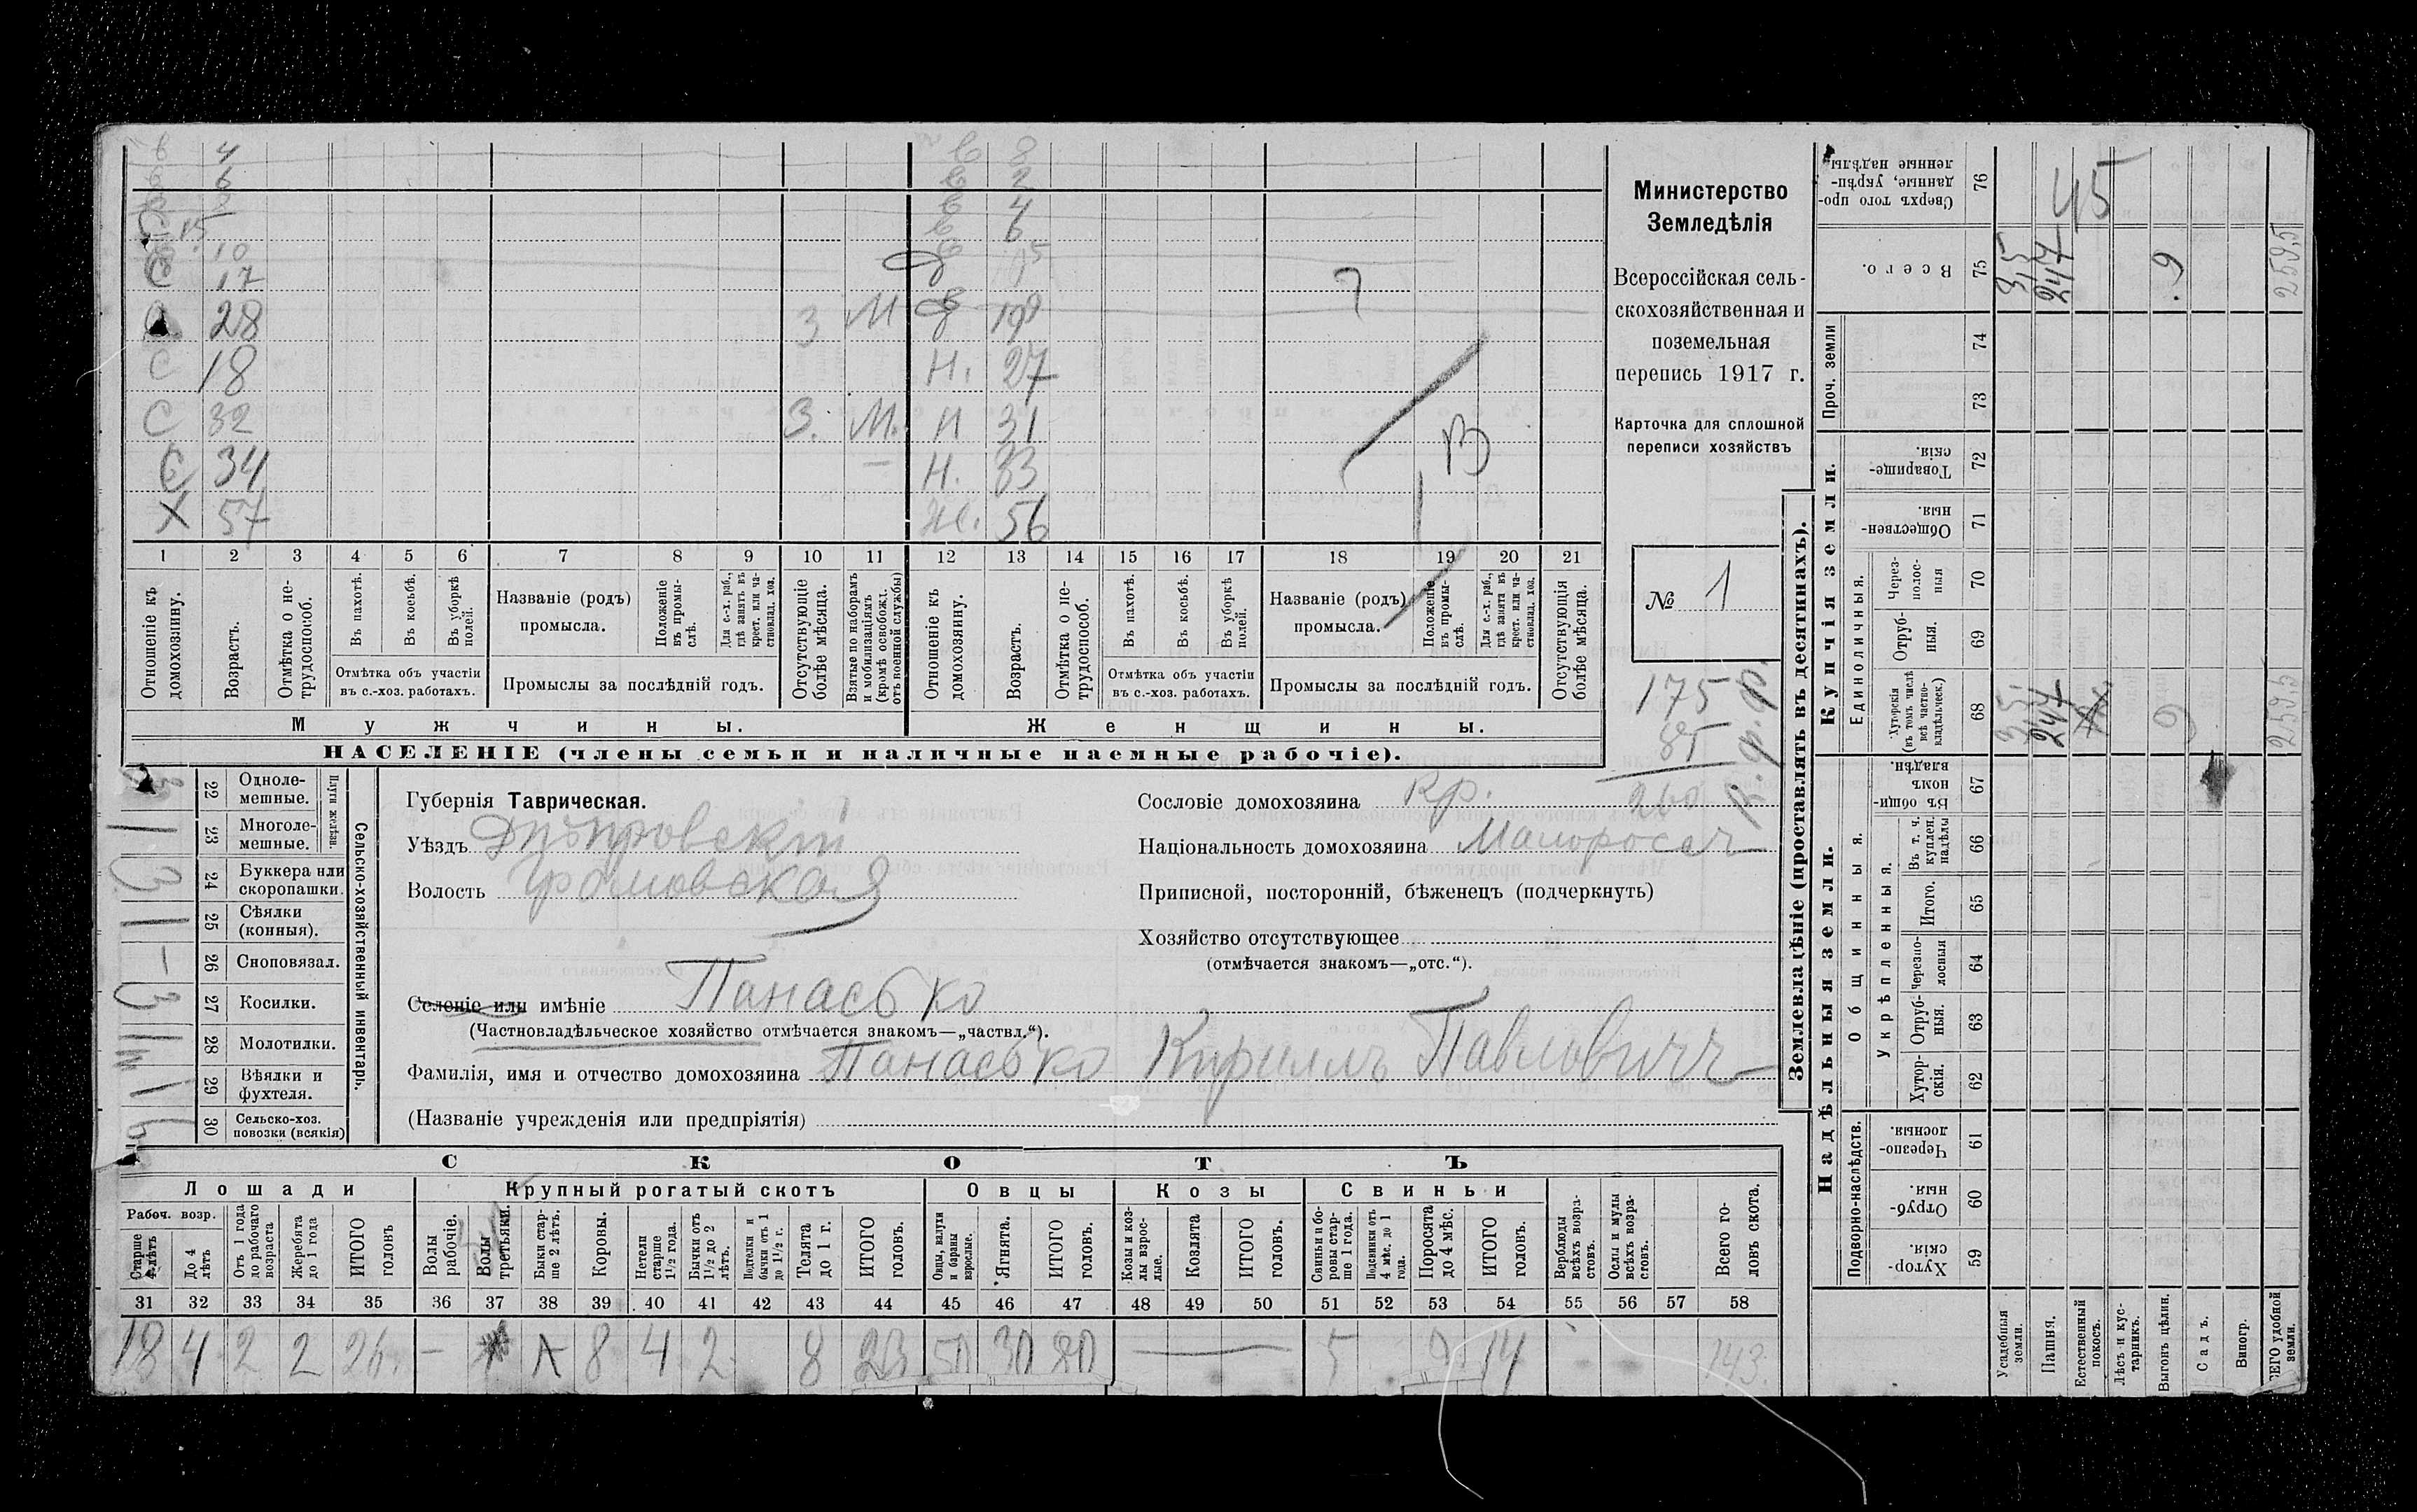 в 4 в 8
в 6 в 2
в 4
С 15 в 6
10
С 17
28 З М 19
С 18 Н. 27
С 32 З. М. Н 31
С 34 — Н. 33 В
Х 57 Ж. 56
1 2 3 4 5 6 7 8 9 10 11 12 13 14 15 16 17 18 19 20 21
Отношеніе къ домохозяину.
Возрастъ.
Отмѣтка о не-трудоспособ.
Въ пахотѣ.
Въ косьбѣ.
Въ уборкѣ полей.
Отмѣтка объ участіи въ с.-хоз. работахъ.
Названіе (родъ) промысла.
Положеніе въ промы-слѣ.
Для с.-х. раб., гдѣ занятъ въ крест. или ча-стновлад. хоз.
Промыслы за послѣдній годъ.
Отсутствующіе болѣе мѣсяца.
Взятые по наборамъ и мобилизаціямъ (кромѣ освобожд. отъ военной службы)
Отношеніе къ домохозяину.
Возрастъ.
Отмѣтка о не-трудоспособ.
Въ пахотѣ.
Въ косьбѣ.
Въ уборкѣ полей.
Отмѣтка объ участіи въ с.-хоз. работахъ.
Названіе (родъ) промысла.
Положеніе въ промы-слѣ.
Для с.-х. раб., гдѣ занята въ крест. или ча-стновлад. хоз.
Промыслы за послѣдній годъ.
Отсутствующія болѣе мѣсяца.
Мужчины. Женщины.
НАСЕЛЕНІЕ (члены семьи и наличные наемные рабочіе).
Министерство
Земледѣлія
Всероссійская сель-
скохозяйственная и
поземельная
перепись 1917 г.
Карточка для сплошной
переписи хозяйствъ
№ 1
175
85
260
Сельско-хозяйственный инвентарь.
Плуги желѣзн.
22 Однолемешные.
23 Многоле-мешные. 1
24 Буккера или скоропашки. 3
25 Сѣялки (конныя). 1
26 Сноповязал. –
27 Косилки. 3
28 Молотилки.
29 Вѣялки и фухтеля. 1
30 Сельско-хоз. повозки (всякія) 6
Губернія Таврическая.
Уѣздъ Днѣпровскій
Волость Громовская
Селеніе или имѣніе Панасько
(Частновладѣльческое хозяйство отмѣчается знакомъ—„частвл.“).
Фамилія, имя и отчество домохозяина Панасько Кириллъ Павловичъ
(Названіе учрежденія или предпріятія)
Сословіе домохозяина Кр.
Національность домохозяина Малоросъ
Приписной, посторонній, бѣженецъ (подчеркнуть)
Хозяйство отсутствующее
(отмѣчается знакомъ—„отс.“).
СКОТЪ
Лошади Крупный рогатый скотъ Овцы Козы Свиньи
Рабоч. возр.
Старше 4 лѣтъ
До 4 лѣтъ
Отъ 1 года до рабочаго возраста
Жеребята до 1 года
ИТОГО головъ
Волы рабочіе.
Волы третьяки.
Быки стар-ше 2 лѣтъ.
Коровы.
Нетели старше 1½ года.
Бычки отъ 1½ до 2 лѣтъ.
Подтелки и бычки отъ 1 до 1½ г.
Телята до 1 г.
ИТОГО головъ.
Овцы, валухи и бараны взрослые.
Ягнята.
ИТОГО головъ.
Козы и коз-лы взрос-лые.
Козлята
ИТОГО головъ.
Свиньи и бо-ровы стар-ше 1 года.
Подсвинки отъ 4 мѣс. до 1 года.
Поросята до 4 мѣс.
ИТОГО головъ.
Верблюды всѣхъ возра-стовъ.
Ослы и мулы всѣхъ возра-стовъ.
Всего го-ловъ скота.
31 32 33 34 35 36 37 38 39 40 41 42 43 44 45 46 47 48 49 50 51 52 53 54 55 56 57 58
18 4 2 2 26. – 1 8 4 2 8 23 50 30 80 — 5 9 14 143.
Землевладѣніе (проставлять въ десятинахъ).
Купчія земли.
Надѣльныя земли.
Сверхъ того про-данные, укрѣп-ленные надѣлы 76
Всего. 75
Проч. земли 74 73
Товарище-скія. 72
Обществен-ныя. 71
Единоличныя.
Через-полос-ныя 70
Отруб-ныя. 69
Хуторскія (въ томъ числѣ всѣ частно-владѣльческ.) 68
Въ общин-номъ владѣн. 67
Общинныя.
Укрѣпленныя.
Въ т. ч. куплен. надѣлы 66
Итого. 65
Черезпо-лосныя 64
Отруб-ныя. 63
Хутор-скія. 62
Подворно-наслѣдств.
Черезпо-лосныя. 61
Отруб-ныя. 60
Хутор-скія. 59
Усадебныя земли. 3,5 3,5
Пашня. 247 247 45
Естественный покосъ.
Лѣсъ и кус-тарникъ.
Выгонъ цѣлин. 9 9
Садъ.
Виногр.
ВСЕГО удобной земли. 259,5 259,5